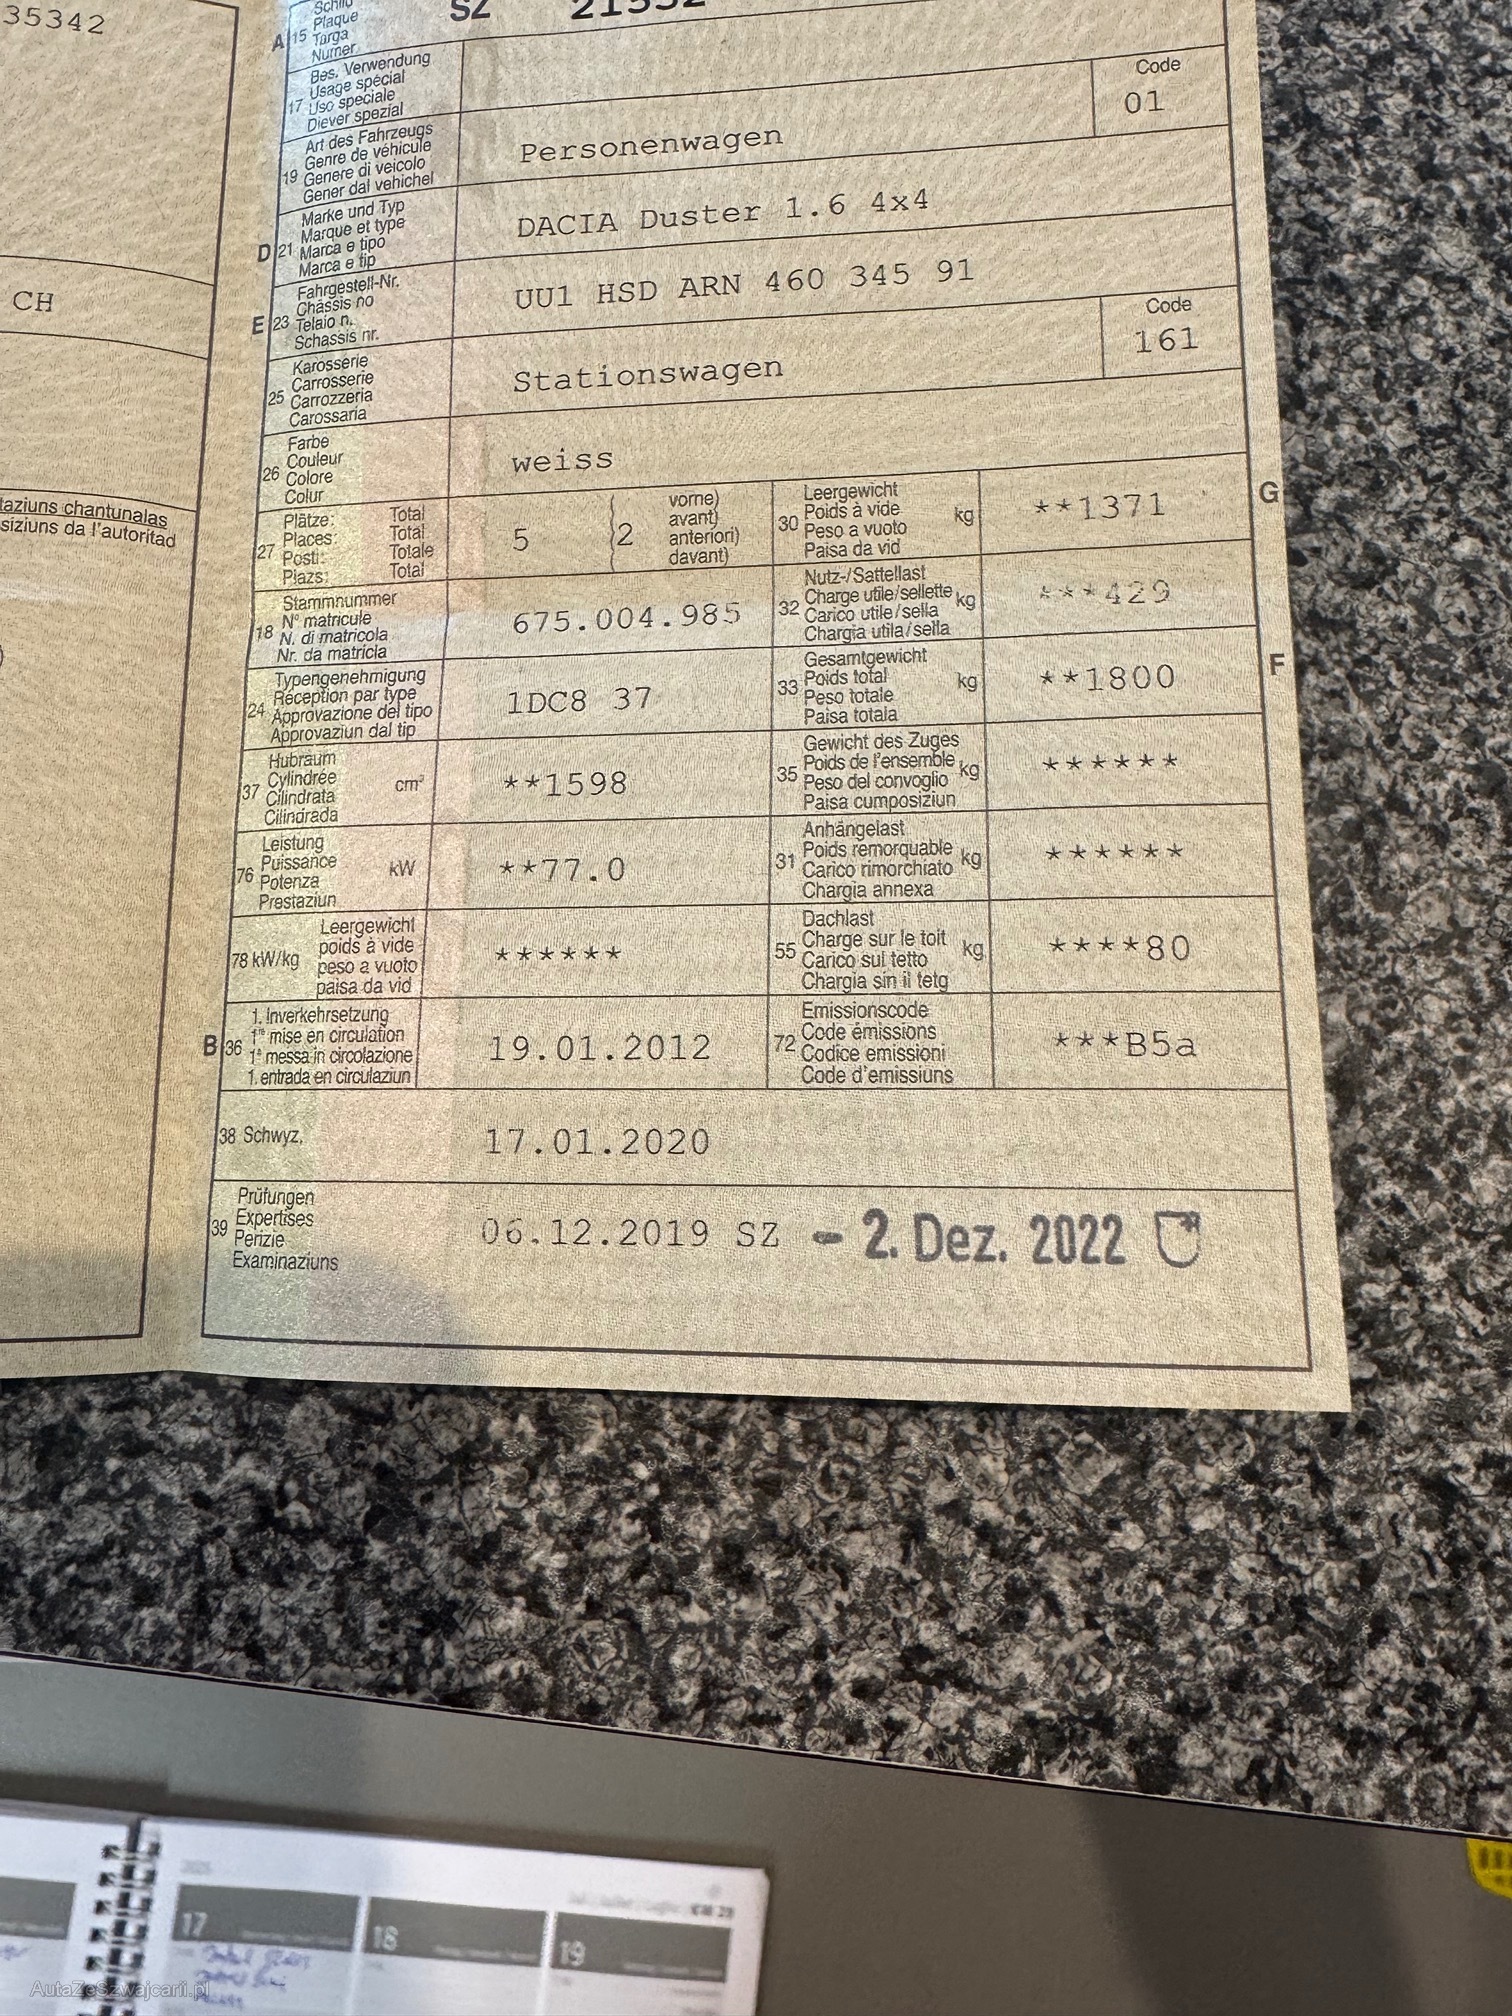 35342
CH
taziuns chantunalas
siziuns da l'autoritad
A 15 Schild
Plaque
Targa
Numer
SZ
17 Bes. Verwendung
Usage spécial
Uso speciale
Diever spezial
19 Art des Fahrzeugs
Genre de véhicule
Genere di veicolo
Gener dal vehichel
Personenwagen
Code
01
D 21 Marke und Typ
Marque et type
Marca e tipo
Marca e tip
DACIA Duster 1.6 4x4
E 23 Fahrgestell-Nr.
Châssis no
Telaio n.
Schassis nr.
UU1 HSD ARN 460 345 91
25 Karosserie
Carrosserie
Carrozzeria
Carossaria
Stationswagen
Code
161
26 Farbe
Couleur
Colore
Colur
weiss
27 Plätze: Total
Places: Total
Posti: Totale
Plazs: Total
5 2
vorne)
avant)
anteriori)
davant)
30 Leergewicht
Poids à vide
Peso a vuoto
Paisa da vid
kg
**1371
G
18 Stammnummer
N° matricule
N. di matricola
Nr. da matricla
675.004.985
32 Nutz-/Sattellast
Charge utile/sellette
Carico utile/sella
Chargia utila/sella
kg
***429
24 Typengenehmigung
Réception par type
Approvazione del tipo
Approvaziun dal tip
1DC8 37
33 Gesamtgewicht
Poids total
Peso totale
Paisa totala
kg
**1800
F
37 Hubraum
Cylindrée
Cilindrata
Cilindrada
cm³
**1598
35 Gewicht des Zuges
Poids de l'ensemble
Peso del convoglio
Paisa cumposiziun
kg
******
76 Leistung
Puissance
Potenza
Prestaziun
kW
**77.0
31 Anhängelast
Poids remorquable
Carico rimorchiato
Chargia annexa
kg
******
78 kW/kg
Leergewicht
poids à vide
peso a vuoto
paisa da vid
******
55 Dachlast
Charge sur le toit
Carico sul tetto
Chargia sin il tetg
kg
****80
B 36 1. Inverkehrsetzung
1re mise en circulation
1a messa in circolazione
1. entrada en circulaziun
19.01.2012
72 Emissionscode
Code émissions
Codice emissioni
Code d'emissiuns
***B5a
38 Schwyz,
17.01.2020
39 Prüfungen
Expertises
Perizie
Examinaziuns
06.12.2019 SZ - 2. Dez. 2022
17
18
19
AutaZeSzwajcarii.pl